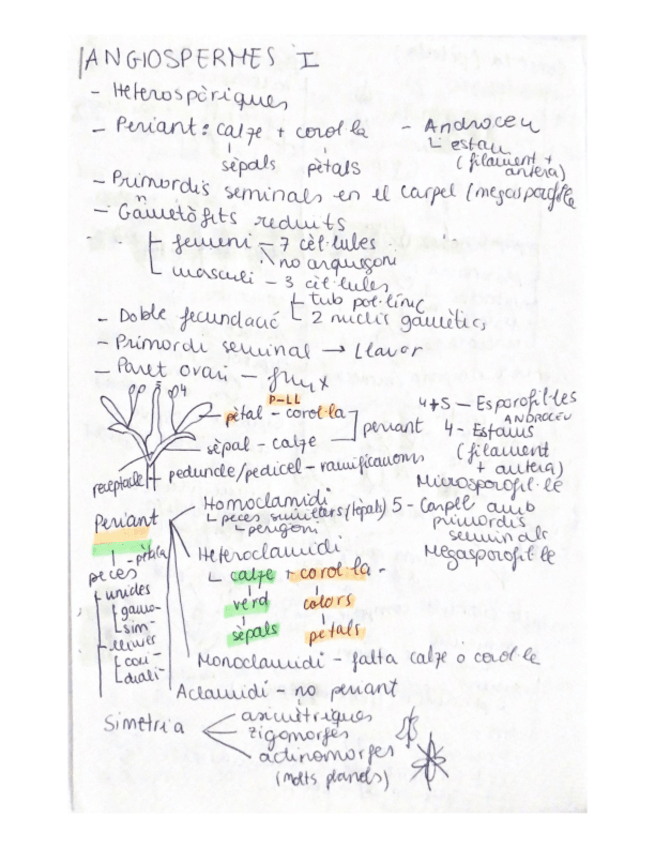 ANGIOSPERMES I
- Heterospòriques
- Periant: calze + corol·la
sèpals pètals
- Androceu
estam
(filament + antera)
- Primordis seminals en el carpel (megasporòfil·le
- Gàmetòfits reduits
femeni - 7 cèl·lules
no arquegoni
masculi - 3 cèl·lules
tub pol·línic
2 nuclis gamètics
- Doble fecundació
- Primordi seminal → llavor
- Paret ovari - fruit
P-LL
pètal - corol·la
sèpal - calze
periant
receptacle
peduncle/pedicel - ramificacions
4+5 - Esporofil·les
ANDROCEU
4 - Estams
(filament
+ antera)
Microsporofil·le
5 - Carpel amb
primordis
seminals
Megasporofil·le
Periant
- pètala
peces
unides
gamo-
sim-
lliures
cori-
diali-
Homoclamidi
peces similars (tèpals)
perigoni
Heteroclamidi
calze + corol·la -
verd colors
sèpals petals
Monoclamidi - falta calze o corol·le
Aclamidi - no periant
Simetria
asimètriques
zigomorfes
actinomorfes
(molts planols)